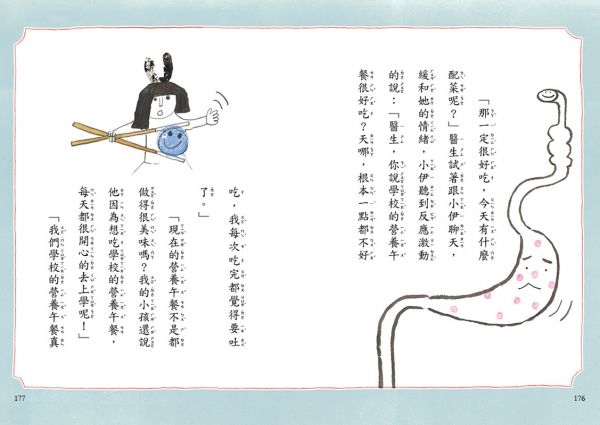 「那一定很好吃，今天有什麼
配菜呢？」醫生試著跟小伊聊天，
緩和她的情緒，小伊聽到反應激動
的說：「醫生，你說學校的營養午
餐很好吃？天哪，根本一點都不好
吃，我每次吃完都覺得要吐
了。」
「現在的營養午餐不是都
做得很美味嗎？我的小孩還說
他因為想吃學校的營養午餐，
每天都很開心的去上學呢！」
「我們學校的營養午餐真
177
176